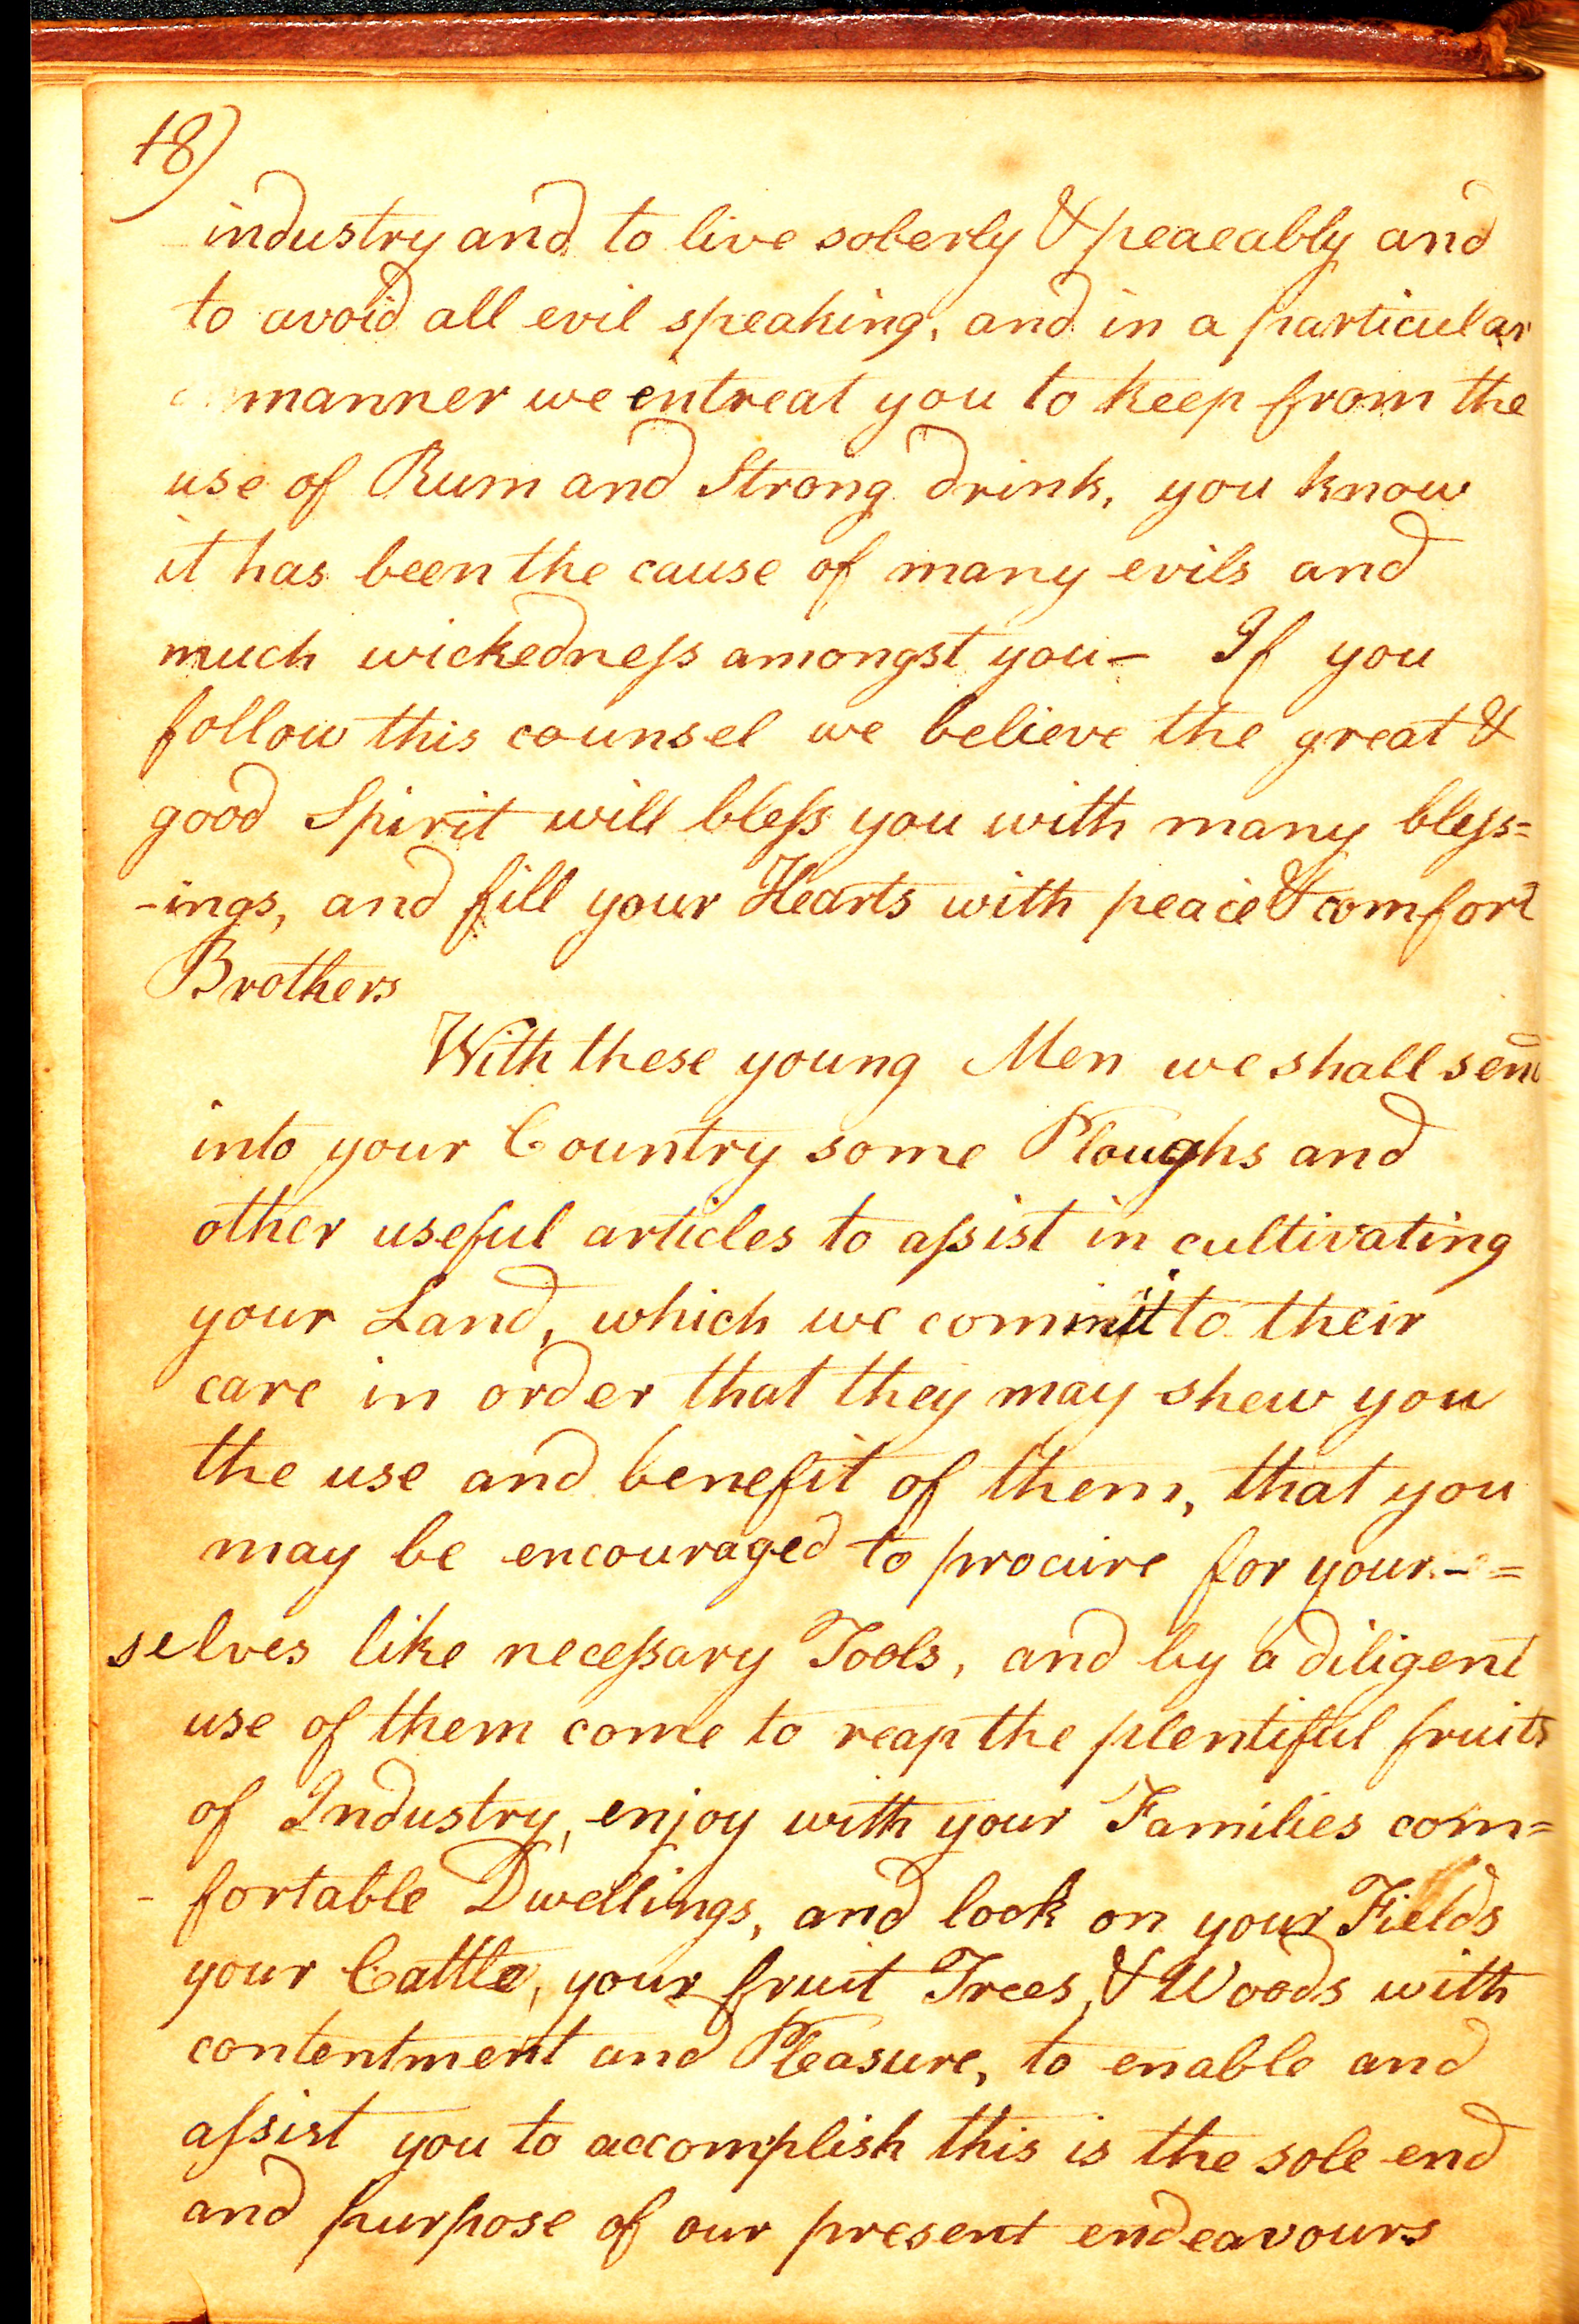 18)
industry and to live soberly & peaceably and
to avoid all evil speaking, and in a particular
manner we entreat you to keep from the
use of Rum and Strong drink, you know
it has been the cause of many evils and
much wickedneſs amongst you – If you
follow this counsel we believe the great &
good Spirit will bleſs you with many bleſs=
-ings, and fill your Hearts with peace & comfort
Brothers
With these young Men we shall send
into your Country some Ploughs and
other useful articles to aſsist in cultivating
your Land, which we commit to their
care in order that they may shew you
the use and benefit of them, that you
may be encouraged to procure for your-=
selves like neceſsary Tools, and by a diligent
use of them come to reap the plentiful fruits
of Industry, enjoy with your Families com=
- fortable Dwellings, and look on your Fields
your Cattle, your fruit Trees, & Woods with
contentment and Pleasure, to enable and
aſsist you to accomplish this is the sole end
and purpose of our present endeavours